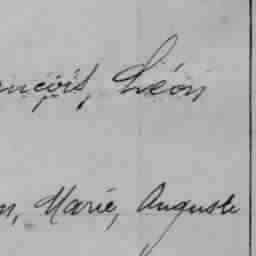 ançois, Léon
n, Marie, Auguste